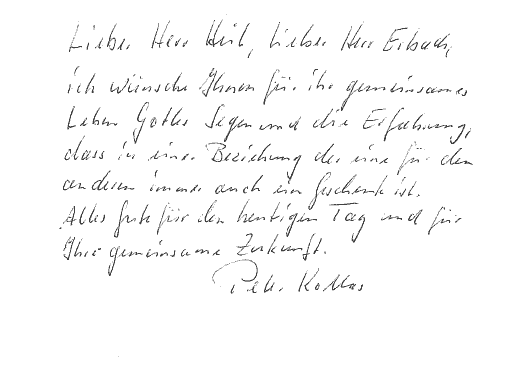 Lieber Herr Heil, lieber Herr Erbach,
ich wünsche Ihnen für ihr gemeinsames
Leben Gottes Segen und die Erfahrung,
dass in einer Beziehung der eine für den
anderen immer auch ein Geschenk ist.
Alles Gute für den heutigen Tag und für
Ihre gemeinsame Zukunft.
Peter Kollas